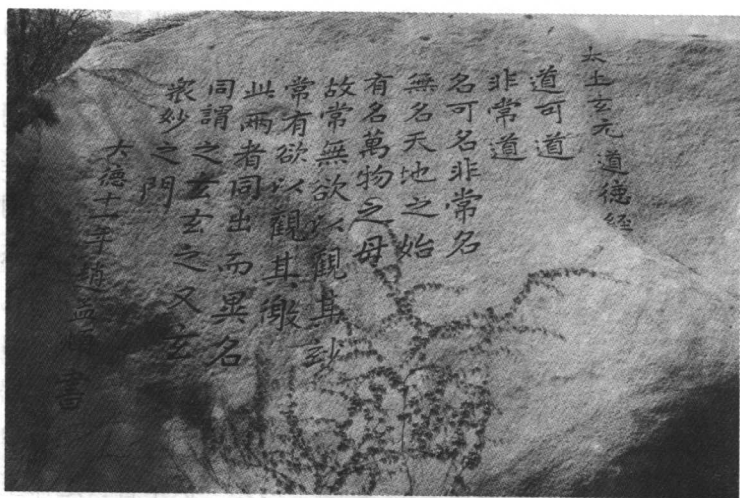 太上玄元道德經
道可道
非常道
名可名非常名
無名天地之始
有名萬物之母
故常無欲以觀其玅
常有欲以觀其徼
此兩者同出而異名
同謂之玄玄之又玄
衆妙之門
大德十一年趙孟頫書